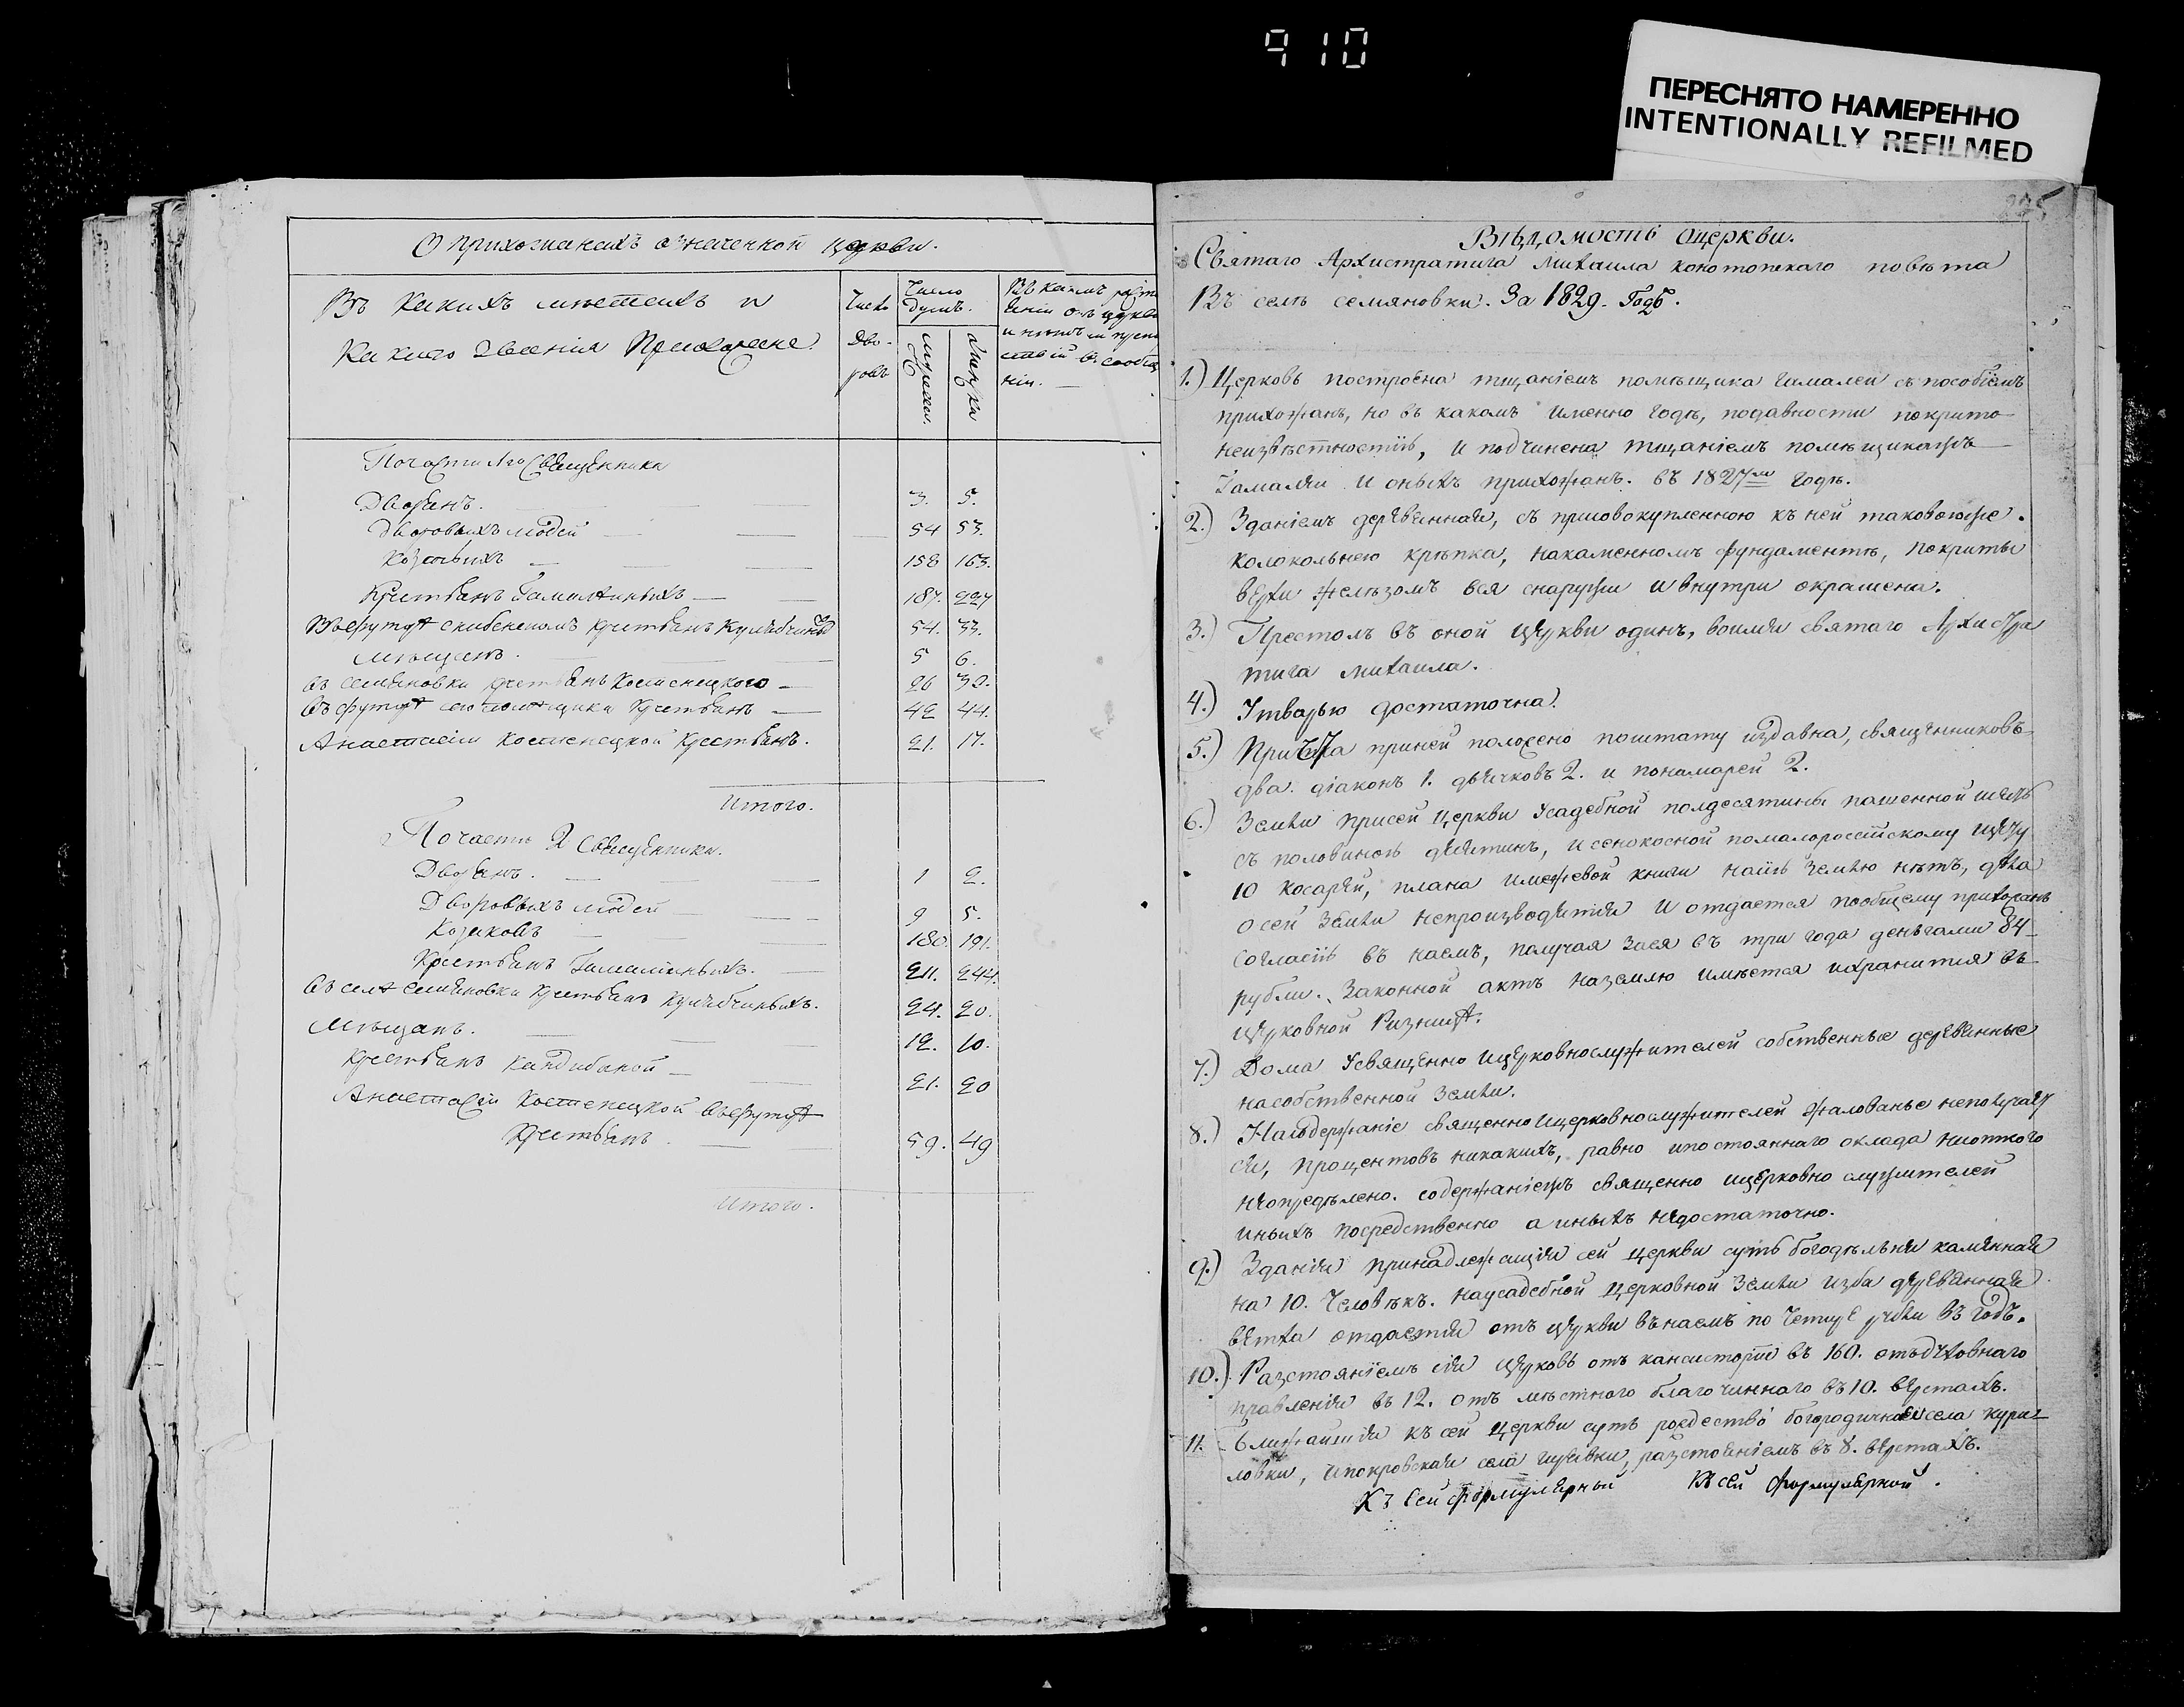 910
ПЕРЕСНЯТО НАМЕРЕННО
INTENTIONALLY REFILMED
О прихожанахъ означенной церкви.
Въ какихъ мѣстахъ и
какого звания Прихожане
Число
Дво-
ровъ
Число
душъ.
мужска.
женска
Въ каком разсто
янии отъ церкви
и нѣтъ ли препят
ствій въ сообще
ніи.
По части 1го Священника
Дворянъ. 3. 5.
Дворовыхъ людей 54 53.
Козачьихъ 158 163.
Крестьянъ Гамалѣиныхъ 187. 227
Въ футорѣ крестьянъ 54. 33.
Мѣщанъ. 5 6.
въ Семяновки крестьянъ Костенецкого 26 30.
въ футорѣ сего помѣщика крестьянъ 42 44.
Анастасіи Костенецкой крестьянъ. 21. 17.
Итого.
По части 2 Священника.
Дворянъ. 1 2.
Дворовыхъ людей 9 5.
Козаковъ 180. 191.
Крестьянъ Гамалѣиныхъ. 211. 244.
Въ селѣ Семяновки крестьянъ 24. 20.
Мѣщанъ. 12. 10.
Крестьянъ Кандибаной 21. 20
Анастасіи Костенецкой въ футорѣ
Крестьянъ. 59. 49
Итого.
225
Вѣдомость о церкви.
Святаго Архистратига Михаила конотопскаго повѣта
Въ селѣ семяновки. За 1829. Годъ.
1.) Церковь построена тщаніемъ помѣщика Гамалеи съ пособіемъ
прихожанъ, но въ какомъ именно годѣ, по давности покрито
неизвѣстностію, и подчинена тщаніемъ помѣщика жъ
Гамалѣи и оныхъ прихожанъ. въ 1827м годѣ.
2.) Зданіемъ деревянная, съ присовокупленною къ ней таковою же.
колокольнею крѣпка, на каменномъ фундаментѣ, покриты
верхи желѣзомъ вся снаружи и внутри окрашена.
3.) Престолъ въ оной церкви одинъ, во имя святаго Архистра
тига михаила.
4.) Утварью достаточна.
5.) Причта при ней положено по штату издавна, священниковъ
два. діаконъ 1. дьячковъ 2. и понамарей 2.
6.) Земли при сей церкви усадебной полдесятины пашенной шесть
съ половиною десятинъ, и сенокосной по малоросійскому щету
10 косарей, плана и межевой книги на ію землю нѣтъ, дѣла
о сей земли непроизводится и отдается по общему прихожанъ
согласію въ наемъ, получая за ея въ три года деньгами 84
рубли. Законной актъ на землю имѣется и хранится въ
церковной Ризницѣ.
7.) Дома у священно и церковнослужителей собственные деревянные
на собственной земли.
8.) На содержаніе священно и церковнослужителей жалованье неполучает
ся, процентовъ никакихъ, равно и постояннаго оклада ни от кого
неопредѣлено. содержаніемъ священно и церковно служителей
иныхъ посредственно а иныхъ недостаточно.
9.) Зданія принадлежащія сей церкви суть богодѣльня каменная
на 10. человѣкъ. на усадебной церковной земли изба деревянная
ветха отдается отъ церкви въ наемъ по четире рубли въ годъ.
10.) Разстояніемъ сія церковь отъ кансисторіи въ 160. отъ духовнаго
правленія въ 12. отъ мѣстного благочиннаго въ 10. верстахъ.
11. Ближайшія къ сей церкви суть рождество богородичная села кури-
ловки, и покровская села разстояніемъ въ 8. верстахъ.
Къ Сей формулярный Къ сей формулярной.